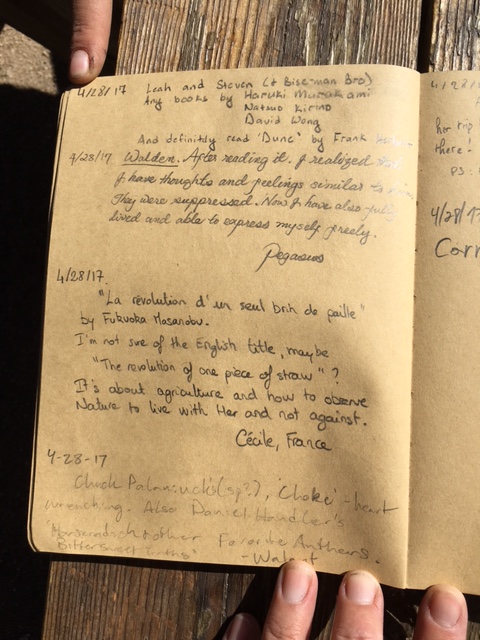 4/28/17 Leah and Steven (+ Bise-man Bro)
Any books by Haruki Murakami
Natsuo Kirino
David Wong
And definitly read 'Dune' by Frank
4/28/17 Walden. After reading it. I realized
I have thoughts and feelings similar to
They were suppressed. Now I have also fully
lived and able to express myself freely.
Pegasus
4/28/17.
"La révolution d'un seul brin de paille"
by Fukuoka Masanobu.
I'm not sure of the English title, maybe
"The revolution of one piece of straw"?
It's about agriculture and how to observe
Nature to live with Her and not against.
Cécile, France
4-28-17
Chuck (sp?), 'Choke' - heart
wrenching. Also Daniel Handler's
Favorite Anthems.
-
4/28/1
her trip
there!
PS:
4/28/17
Corr